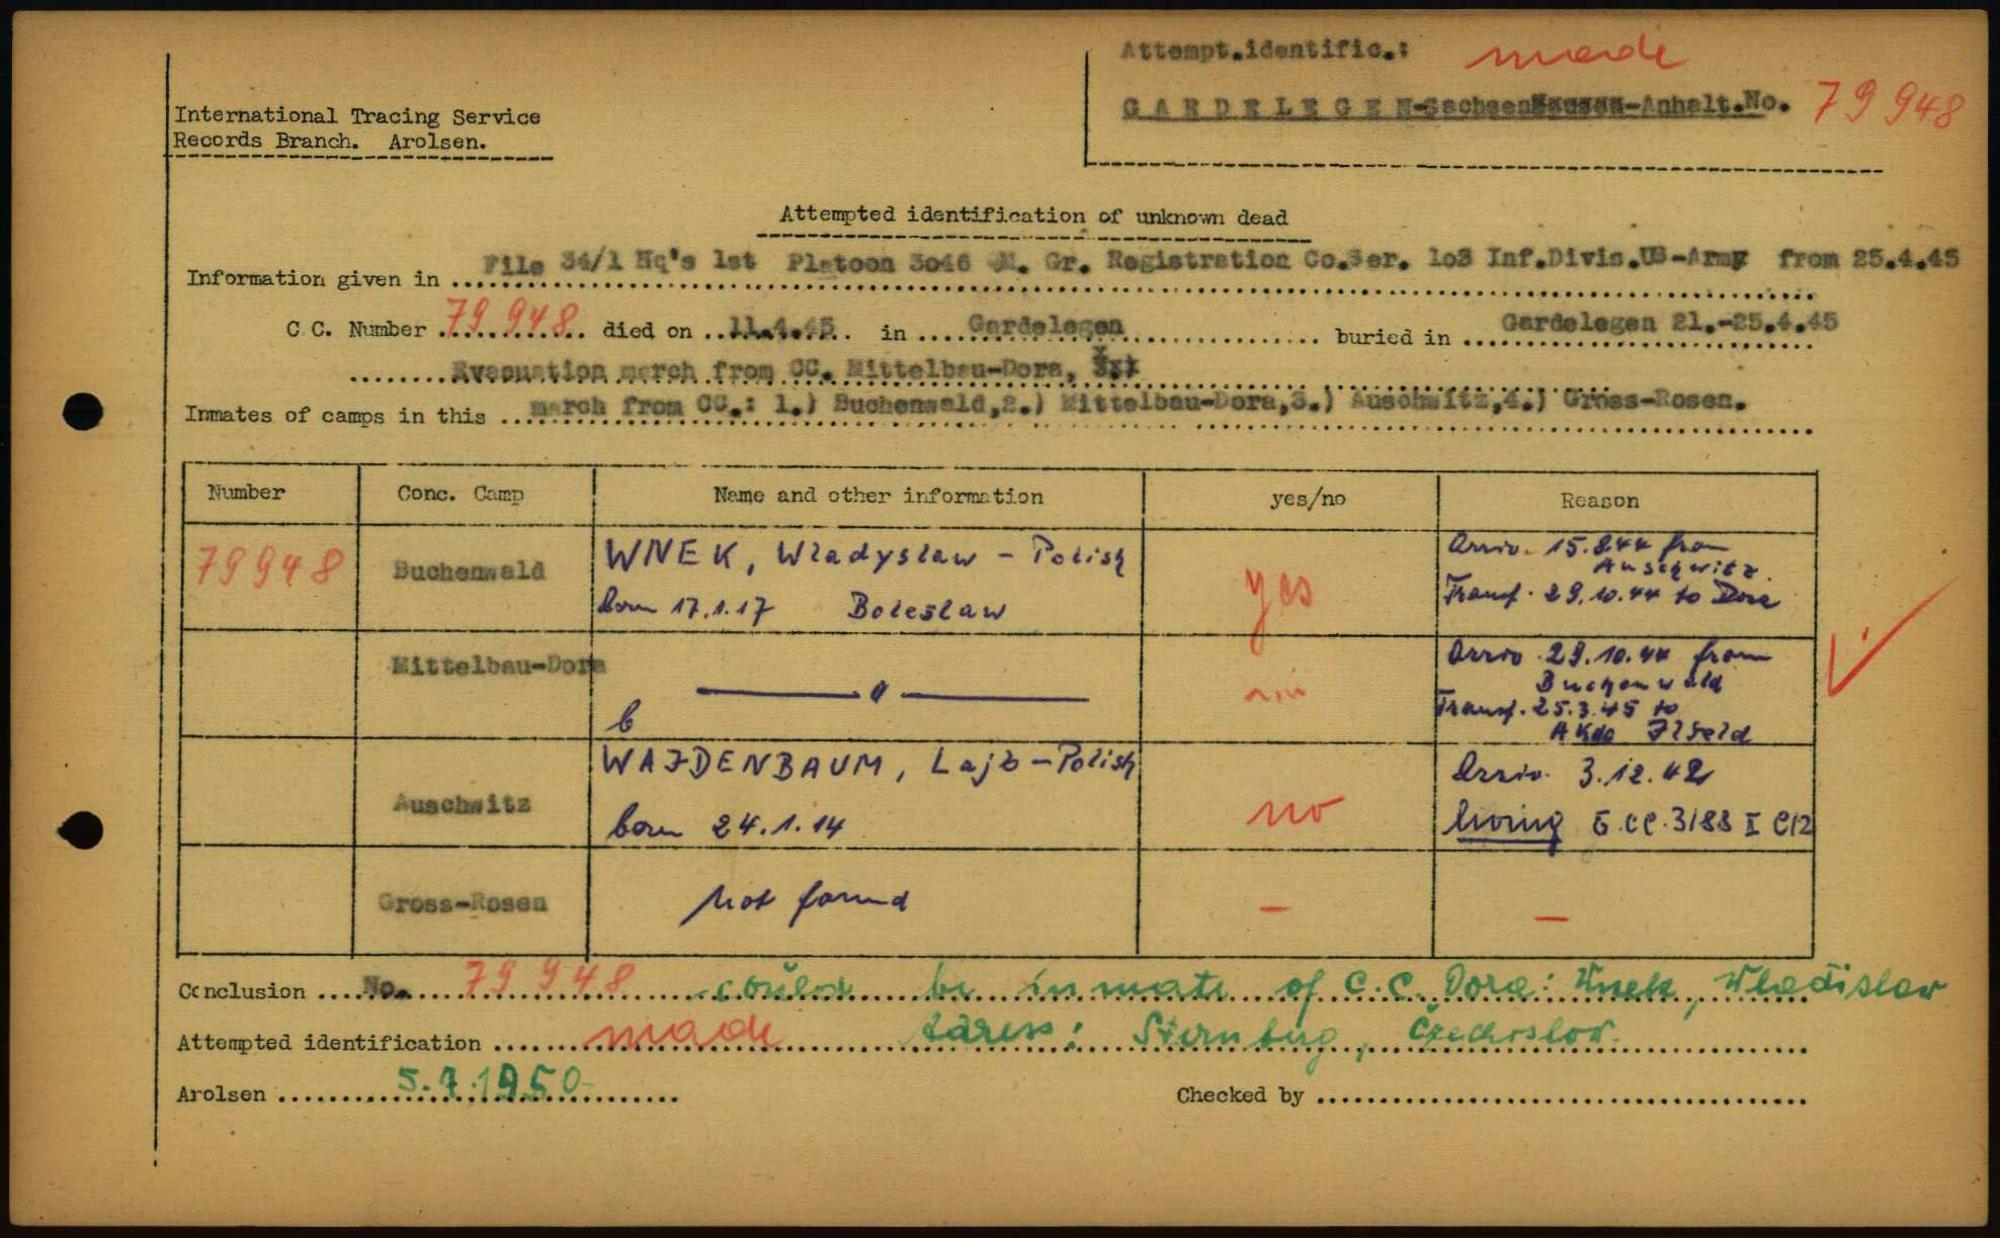 Attempt.identific.: made
GARDELEGEN-Sachsen-Anhalt.No. 79 948
International Tracing Service
Records Branch. Arolsen.
Attempted identification of unknown dead
Information given in File 34/1 Hq's 1st Platoon 3046 M. Gr. Registration Co.Ser. 1o2 Inf.Divis.US-Army from 25.4.45
C C. Number 79 948 died on 11.4.45 in Gardelegen buried in Gardelegen 21.-25.4.45
Evacuation march from CC. Mittelbau-Dora,
Inmates of camps in this march from CC.: 1.) Buchenwald,2.) Mittelbau-Dora,3.) Auschwitz,4.) Gross-Rosen.
Number Conc. Camp Name and other information yes/no Reason
79948 Buchenwald WNEK, Wladyslaw - Polish
born 17.1.17 Boleslaw
yes
Arriv. 15.8.44 from
Auschwitz.
Transf. 29.10.44 to Dora
Mittelbau-Dora — " —
Arriv. 29.10.44 from
Buchenwald
Transf. 25.3.45 to
AKdo Ilfeld
b
Auschwitz WAJDENBAUM, Lajb - Polish
born 24.1.14
no
Arriv. 3.12.42
living G.CC.3188 I C/2
Gross-Rosen not found — —
Conclusion No. 79 948 could be inmate of C.C. Dora: Wnek, Wladislaw
Attempted identification made Sternberg, Czechoslov.
Arolsen 5.7.1950 Checked by